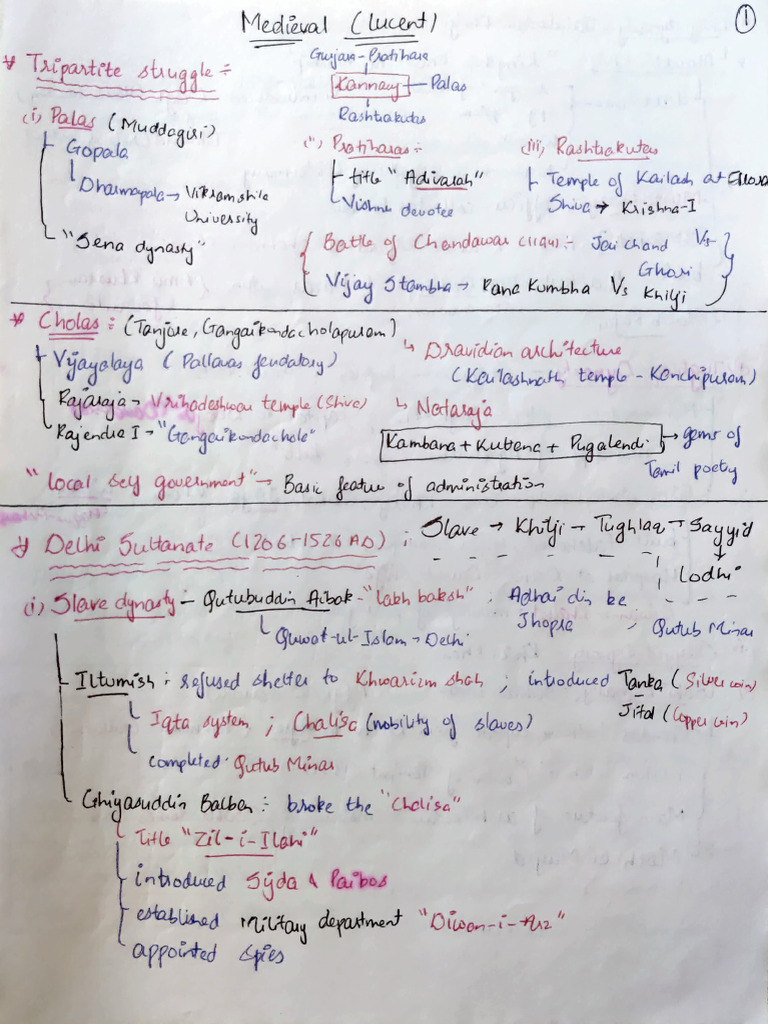 Medieval (Lucent)
1
* Tripartite struggle :-
Gurjara-Pratihara
Kannauj — Palas
Rashtrakutas
(i) Palas (Muddagiri)
Gopala
Dharmapala → Vikramshila
University
"Sena dynasty"
(ii) Pratiharas :-
title "Adivarah"
Vishnu devotee
(iii) Rashtrakutas
Temple of Kailash at Ellora
Shiva → Krishna-I
Battle of Chandawar (1194) :- Jai chand Vs
Ghori
Vijay Stambha → Rana Kumbha Vs Khilji
* Cholas :- (Tanjore, Gangaikondacholapuram)
Vijayalaya (Pallavas feudatory)
Rajaraja → Vrihadeshwar temple (Shiva)
Rajendra I → "Gangaikondachola"
↳ Dravidian architecture
(Kailashnath temple - Kanchipuram)
↳ Nataraja
Kambana + Kuttana + Pugalendi → gems of
Tamil poetry
"local self government" → Basic feature of administration
* Delhi Sultanate (1206-1526 AD) ; Slave → Khilji → Tughlaq → Sayyid
↓
Lodhi
(i) Slave dynasty - Qutubuddin Aibak - "lakh baksh" ; Adhai din ka
Jhopra ; Qutub Minar
Quwat-ul-Islam → Delhi
Iltumish : refused shelter to Khwarizm shah ; introduced Tanka (Silver coin)
Jital (Copper coin)
Iqta system ; Chalisa (nobility of slaves)
completed Qutub Minar
Ghiyasuddin Balban :- broke the "Chalisa"
Title "Zil-i-Ilahi"
introduced Sijda & Paibos
established Military department "Diwan-i-Arz"
appointed spies